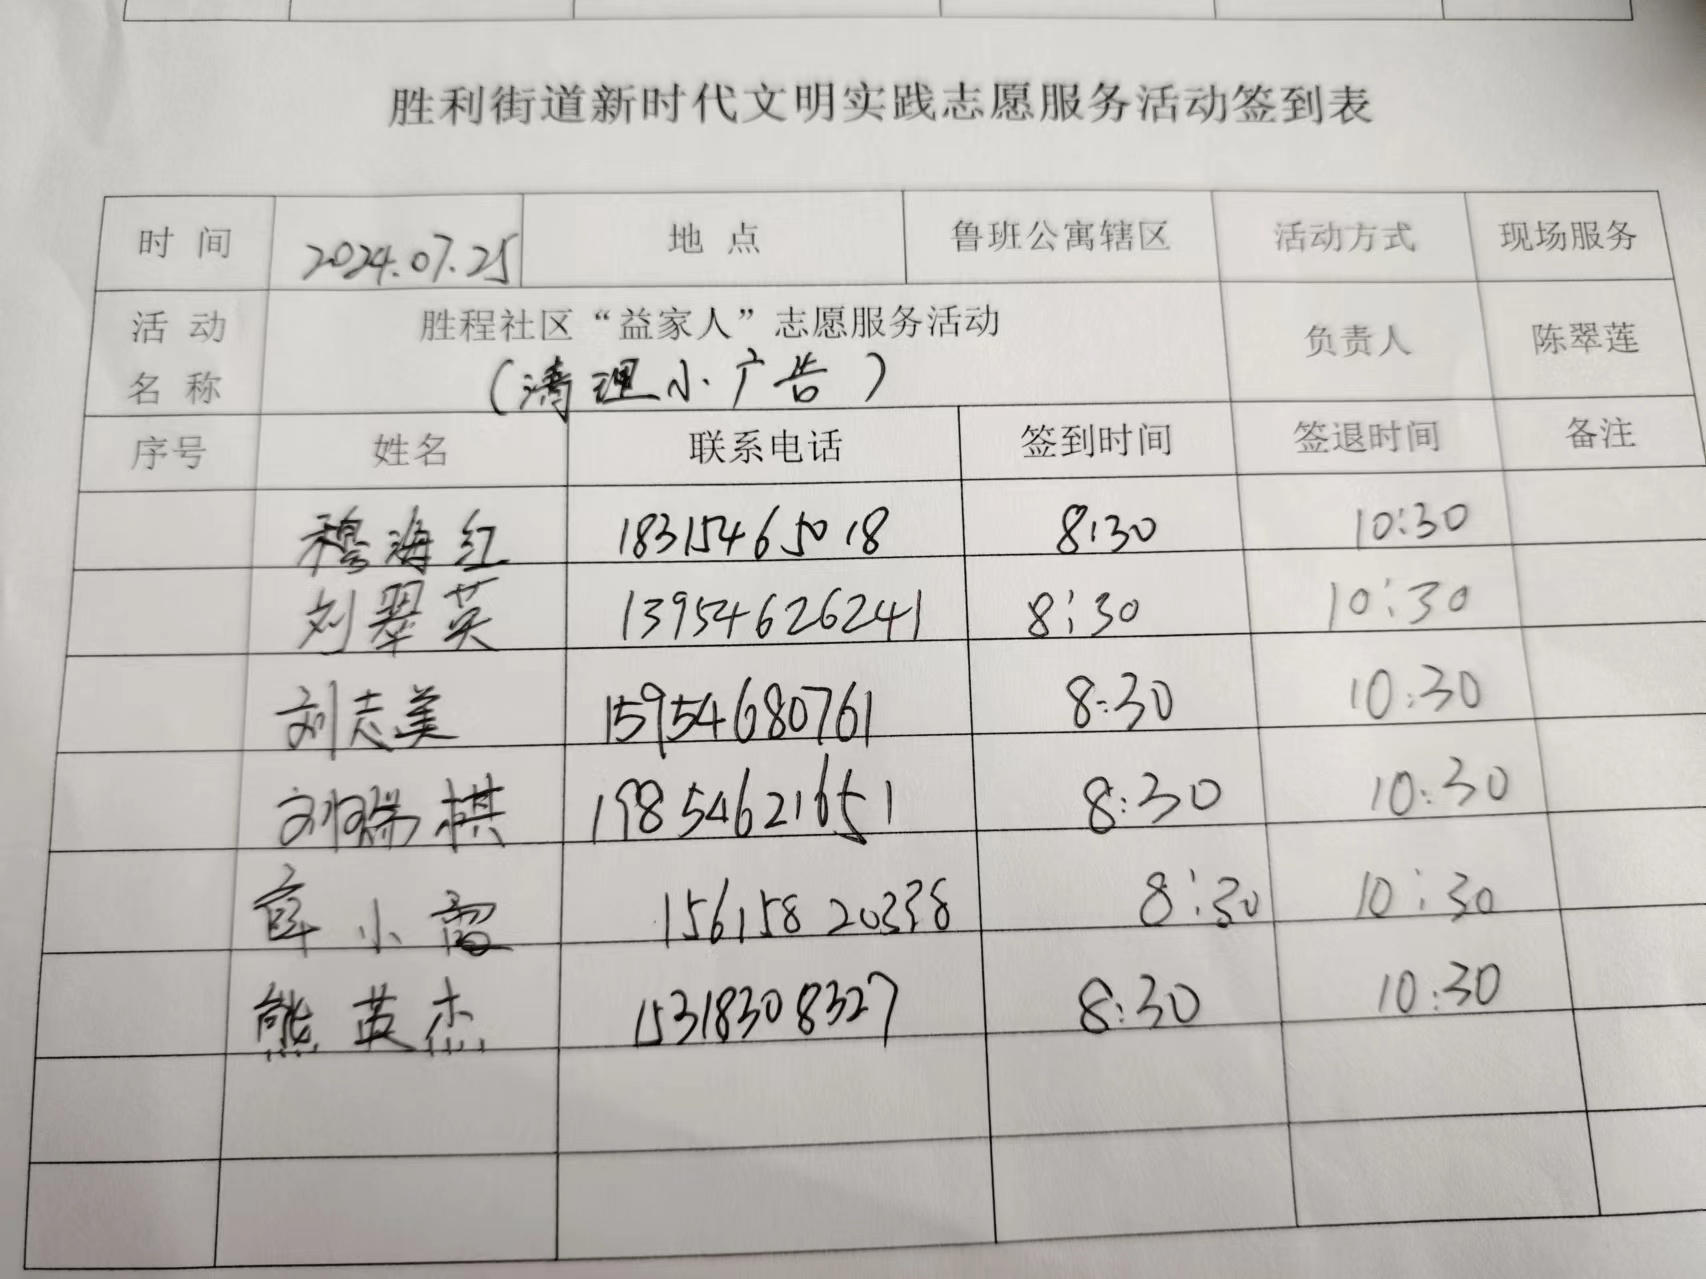 胜利街道新时代文明实践志愿服务活动签到表
时 间 2024.07.25 地 点 鲁班公寓辖区 活动方式 现场服务
活 动 名 称 胜程社区“益家人”志愿服务活动 负责人 陈翠莲
(清理小广告)
序号 姓名 联系电话 签到时间 签退时间 备注
穆海红 18315465018 8:30 10:30
刘翠英 13954626241 8:30 10:30
刘志美 15954680761 8:30 10:30
刘瑞棋 19854621651 8:30 10:30
薛小霞 15615820338 8:30 10:30
熊英杰 15318308327 8:30 10:30